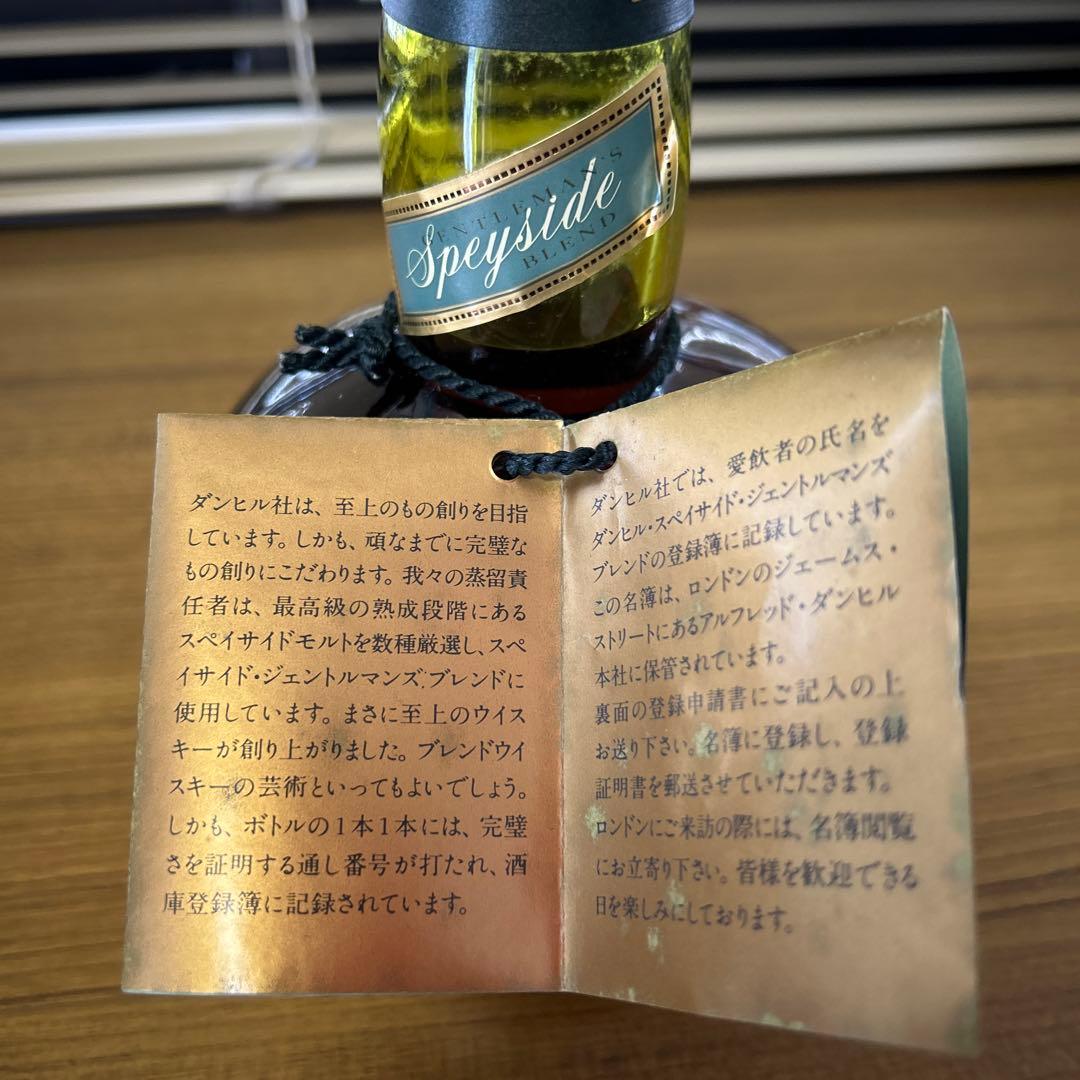 GENTLEMAN'S
Speyside
BLEND
ダンヒル社は、至上のもの創りを目指
しています。しかも、頑なまでに完璧な
もの創りにこだわります。我々の蒸留責
任者は、最高級の熟成段階にある
スペイサイドモルトを数種厳選し、スペ
イサイド・ジェントルマンズ・ブレンドに
使用しています。まさに至上のウイス
キーが創り上がりました。ブレンドウイ
スキーの芸術といってもよいでしょう。
しかも、ボトルの1本1本には、完璧
さを証明する通し番号が打たれ、酒
庫登録簿に記録されています。
ダンヒル社では、愛飲者の氏名を
ダンヒル・スペイサイド・ジェントルマンズ
ブレンドの登録簿に記録しています。
この名簿は、ロンドンのジェームス・
ストリートにあるアルフレッド・ダンヒル
本社に保管されています。
裏面の登録申請書にご記入の上
お送り下さい。名簿に登録し、登録
証明書を郵送させていただきます。
ロンドンにご来訪の際には、名簿閲覧
にお立寄り下さい。皆様を歓迎できる
日を楽しみにしております。